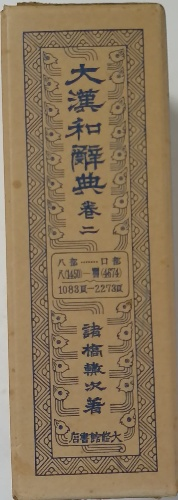 大漢和辭典
卷二
八部……口部
八(1450)—(4674)
1083頁—2273頁
諸橋轍次著
大修館書店